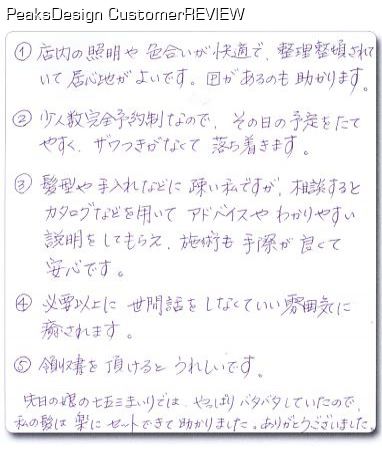 PeaksDesign CustomerREVIEW
① 店内の照明や色合いが快適で、整理整頓されて
いて居心地がよいです。囲があるのも助かります。
② 少人数完全予約制なので、その日の予定をたて
やすく、ザワつきがなくて落ち着きます。
③ 髪型や手入れなどに疎い私ですが、相談すると
カタログなどを用いてアドバイスやわかりやすい
説明をしてもらえ、施術も手際が良くて
安心です。
④ 必要以上に世間話をしなくていい雰囲気に
癒されます。
⑤ 領収書を頂けるとうれしいです。
先日の娘の七五三まいりでは、やっぱりバタバタしていたので、
私の髪は楽にセットできて助かりました。ありがとうございました。